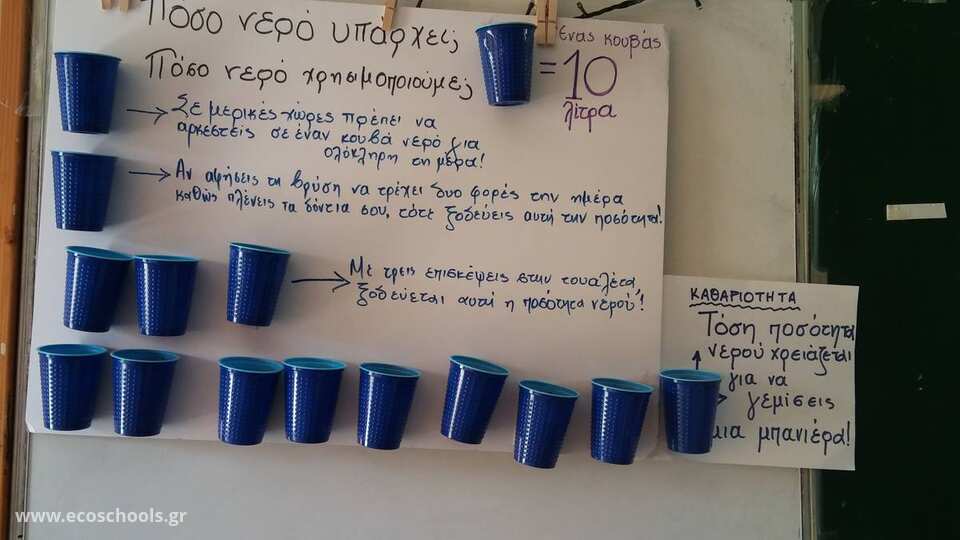 Πόσο νερό υπάρχει;
Πόσο νερό χρησιμοποιούμε;
ένας κουβάς
= 10
λίτρα
→ Σε μερικές χώρες πρέπει να
αρκεστείς σε έναν κουβά νερό για
ολόκληρη τη μέρα!
→ Αν αφήσεις τη βρύση να τρέχει δυο φορές την ημέρα
καθώς πλένεις τα δόντια σου, τότε ξοδεύεις αυτή την ποσότητα!
→ Με τρεις επισκέψεις στην τουαλέτα,
ξοδεύεται αυτή η ποσότητα νερού!
ΚΑΘΑΡΙΟΤΗΤΑ
Τόση ποσότητα
νερού χρειάζεται
για να
γεμίσεις
μια μπανιέρα!
www.ecoschools.gr